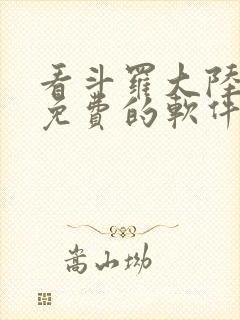 看斗羅大陸
免費的軟件
嵩山坳